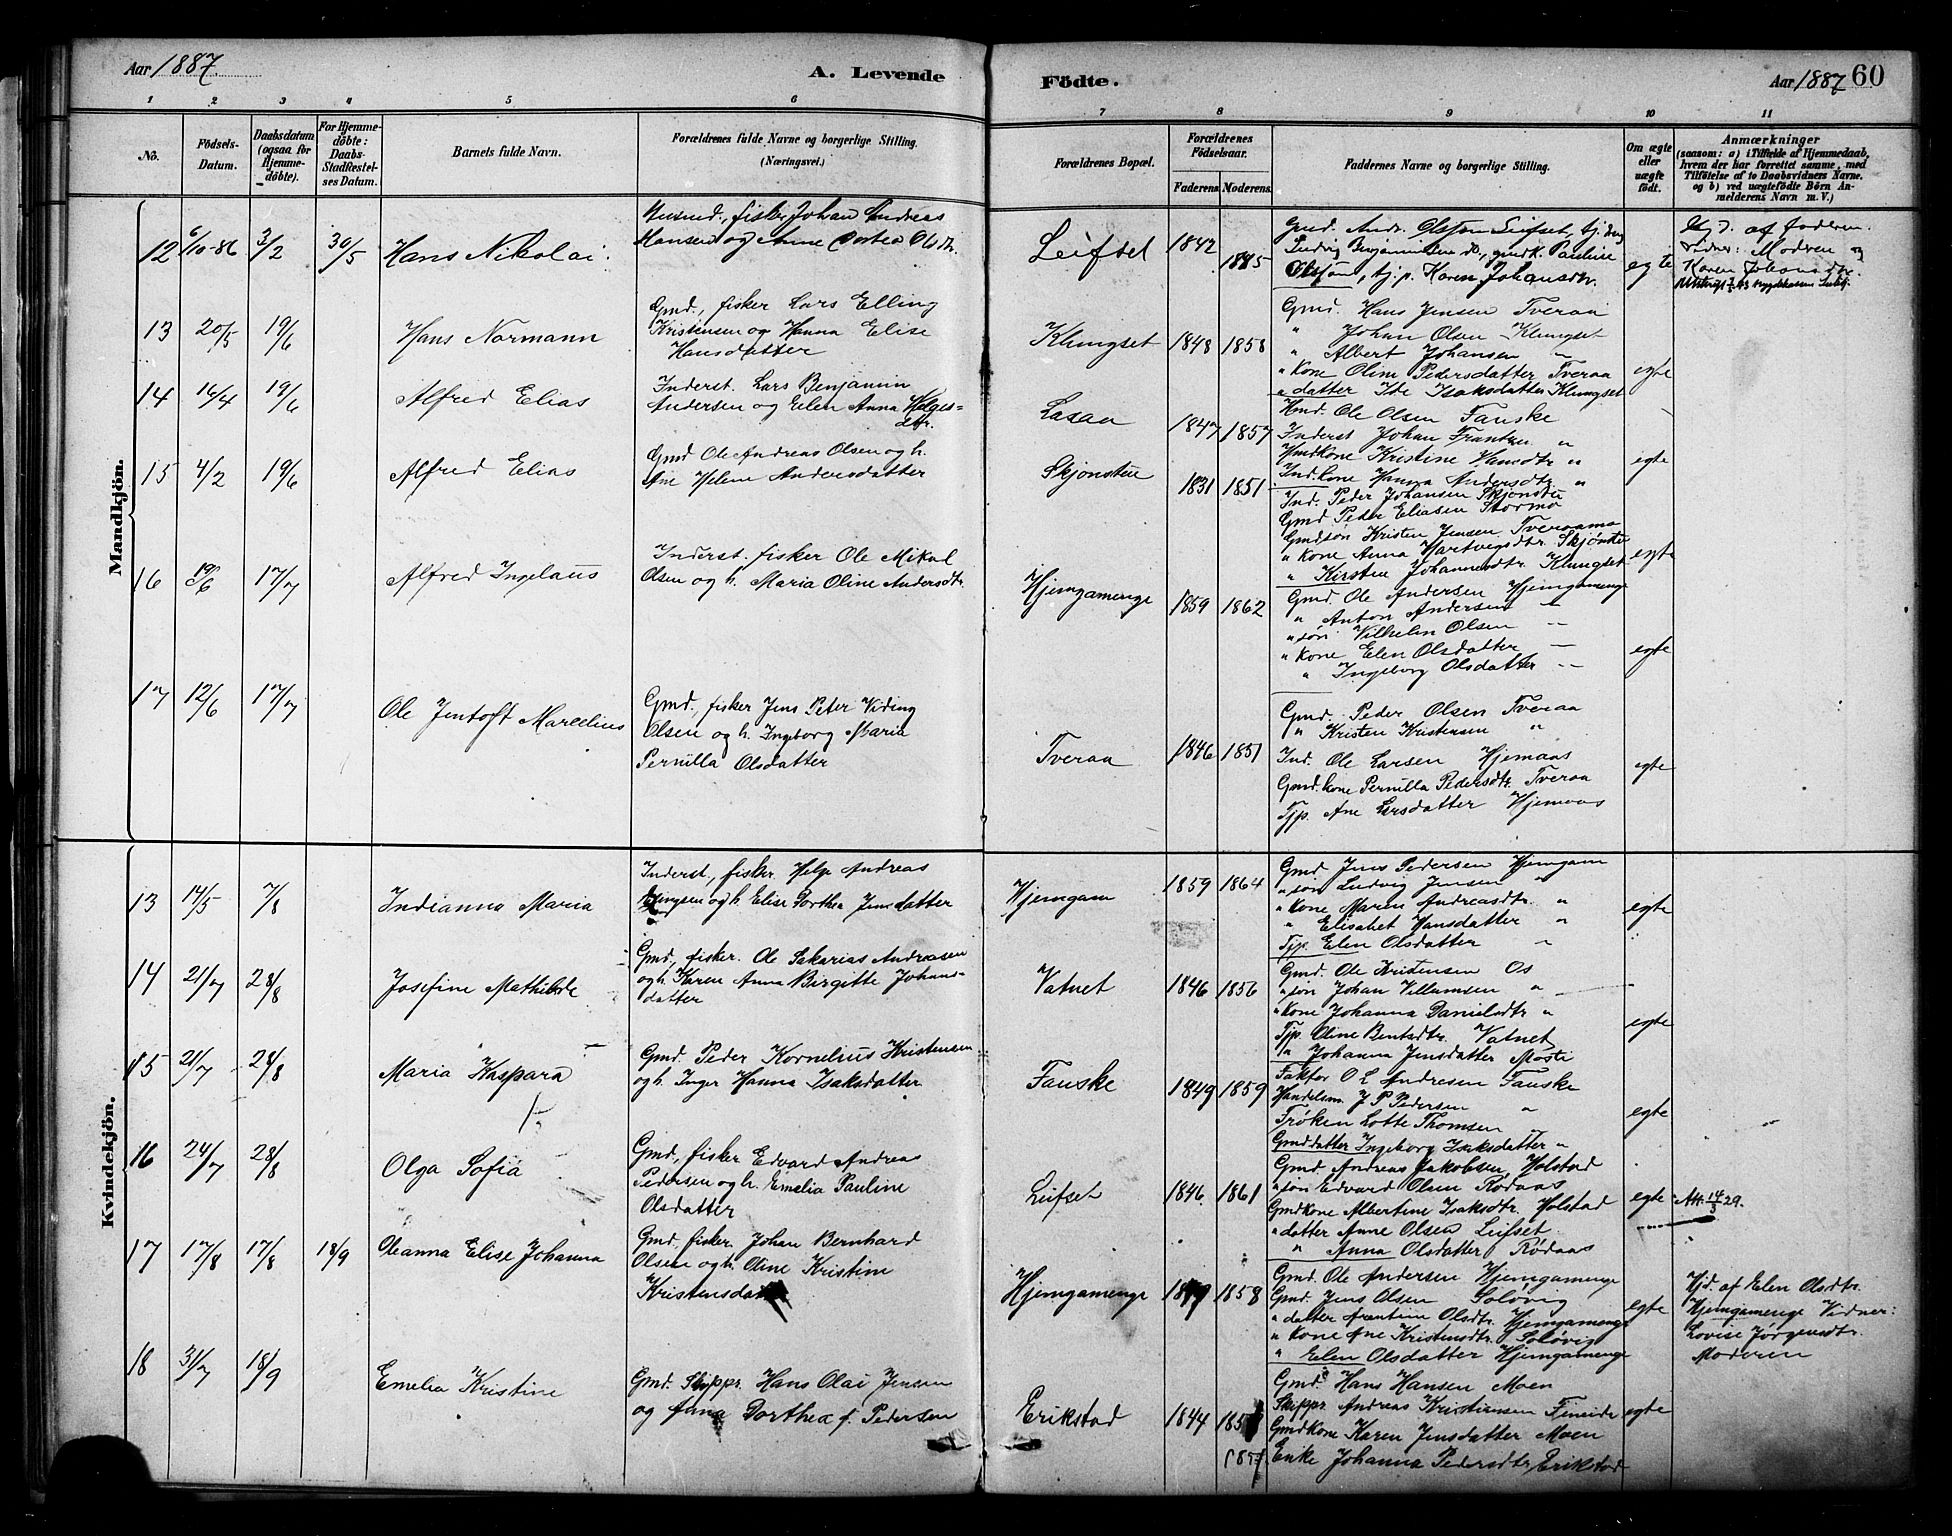 Aar 1887.
A. Levende
1 2 3 4 5 6
No.
Födsels-Datum.
Daabsdatum (ogsaa for Hjemme-döbte).
For Hjemme-döbte: Daabs-Stadfæstel-ses Datum.
Barnets fulde Navn.
Forældrenes fulde Navne og borgerlige Stilling.
(Næringsvei.)
Mandkjön.
12 6/10-86 3/2 30/5 Hans Nikolai.
fisker Johan Andreas
Hansen og Anne Dortea Olsdtr.
13 20/5 19/6 Hans Normann
Gmd., fisker Lars Elling
Kristensen og Hanna Elise
Hansdatter
14 16/4 19/6 Alfred Elias
Inderst. Lars Benjamin
Andersen og Elen Anna Helges-
dtr.
15 4/2 19/6 Alfred Elias
Gmd Ole Andreas Olsen og h.
Ane Helene Andersdatter
16 17/7 Alfred Ingelaus
Inderst. fisker Ole Mikal
Olsen og h. Maria Oline Andersdtr.
17 12/6 17/7 Ole Jentoft Marcelius
Gmd., fisker Jens Peter Viding
Olsen og h. Ingeborg Maria
Pernilla Olsdatter
Kvindekjön.
13 14/5 7/8 Indianna Maria
Inderst., fisker Helge Andreas
og h. Elise Dorthea Jensdatter
14 21/7 28/8 Josefine Mathilde
Gmd, fisker. Ole Sakarias Andreasen
og h. Karen Anna Birgitte Johans-
datter
15 21/7 28/8 Maria Kaspara
Gmd. Peder Kornelius Kristensen
og h. Inger Hanna Isaksdatter
16 24/7 28/8 Olga Sofia
Gmd., fisker Edvard Andreas
Pedersen og h. Emelia Pauline
Olsdatter
17 17/8 17/8 18/9 Oleanna Elise Johanna
Gmd. fisker Johan Bernhard
Olsen og h. Oline Kristine
18 31/7 18/9 Emelia Kristine
Gmd. Skippr. Hans Olai Jensen
og Anna Dorthea f. Pedersen
Födte.
Aar 1887 60
7 8 9 10 11
Forældrenes Bopæl.
Forældrenes Födselsaar.
Faderens. Moderens.
Faddernes Navne og borgerlige Stilling.
Om ægte eller uægte födt.
Anmærkninger
(saasom: a) i Tilfælde af Hjemmedaab,
hvem der har forrettet samme, med
Tilföielse af to Daabsvidners Navne.
og b) ved uægtefödte Börn An-
melderens Navn m. V.)
Leifset 1842 1845
Gmd. Andr. Olsen Leifset,
Ludvig Benjaminsen do., gmdk. Pauline
Karen Johansdtr.
egte
af Faderen.
Vidner: Modren og
Karen Johansdtr.
Klungset 1848 1858
Gmd. Hans Jensen Tveraa
" Johan Olsen Klungset
" Albert Johansen "
" Kone Oline Pedersdatter Tveraa
" datter Ide Isaksdatter Klungset
egte
Lasaa 1847 1857
Hmd. Ole Olsen Fauske
Inderst Johan Frantsen "
Hmdkone Kristine Hansdtr "
Ind. kone Hanna Andersdtr. "
egte
Skjonstue 1831 1851
Ind. Peder Johansen Skjonstu
Gmd Peter Eliasen Stormo
Gmdsøn Kristen Jensen Tveraamo
" Kone Anna Hartvigsdtr. Skjønstu
" Kirsten Johannesdtr. Klungset
egte
Hjemgamenge 1859 1862
Gmd. Ole Andersen Hjemgamenge
" Anton Andersen —
" søn Vilhelm Olsen —
" Kone Elen Olsdatter —
" Ingeborg Olsdatter —
egte
Tveraa 1846 1851
Gmd. Peder Olsen Tveraa
" Kristen Kristensen "
Ind. Ole Larsen Hjemaas
Gmd. kone Pernilla Pedersdtr. Tveraa
Tjp. Ane Larsdatter Hjemaas
egte
Hjemgam 1859 1864
Gmd Jens Pedersen Hjemgam
" søn Ludvig Jensen "
" Kone Maren Andreasdtr. "
" Elisabet Hansdatter "
Tjp. Elen Olsdatter "
egte
Vatnet 1846 1856
Gmd. Ole Kristensen Os
" søn Johan Villumsen "
" Kone Johanna Danielsdtr "
Tjp. Oline Bentsdtr. Vatnet
" Johanna Jensdatter Mosti
egte
Fauske 1849 1859
Faktor O L Andresen Fauske
Handelsm. J P Pedersen "
Frøken Lotte Thomsen "
Gmddatter Ingeborg Isaksdatter "
egte
Leifset 1846. 1861
Gmd. Andreas Jakobsen Holstad
" søn Edvard Olsen Rødaas
Gmdkone Albertine Isaksdtr. Holstad
" datter Anne Olsen Leifset.
" Anna Olsdatter Rødaas
egte Att. 14/3 29.
Hjemgamenge 1858
Gmd. Ole Andersen Hjemgamenge
Gmd. Jens Olsen Soløvig
" datter Arntine Olsdtr. Hjemgamenge
" Kone Ane Kristensdtr. Soløvig
" Elen Olsdatter Hjemgamenge
egte
Hjd. af Elen Olsdtr.
Hjemgamenge Vidner:
Lovise Jørgensdtr.
Moderen
Erikstad 1844
Gmd. Hans Hansen Moen
Skippr. Andreas Kristensen Fineide
Gmdkone Karen Jensdatter Moen
Enke Johanna Pedersdtr. Erikstad
egte